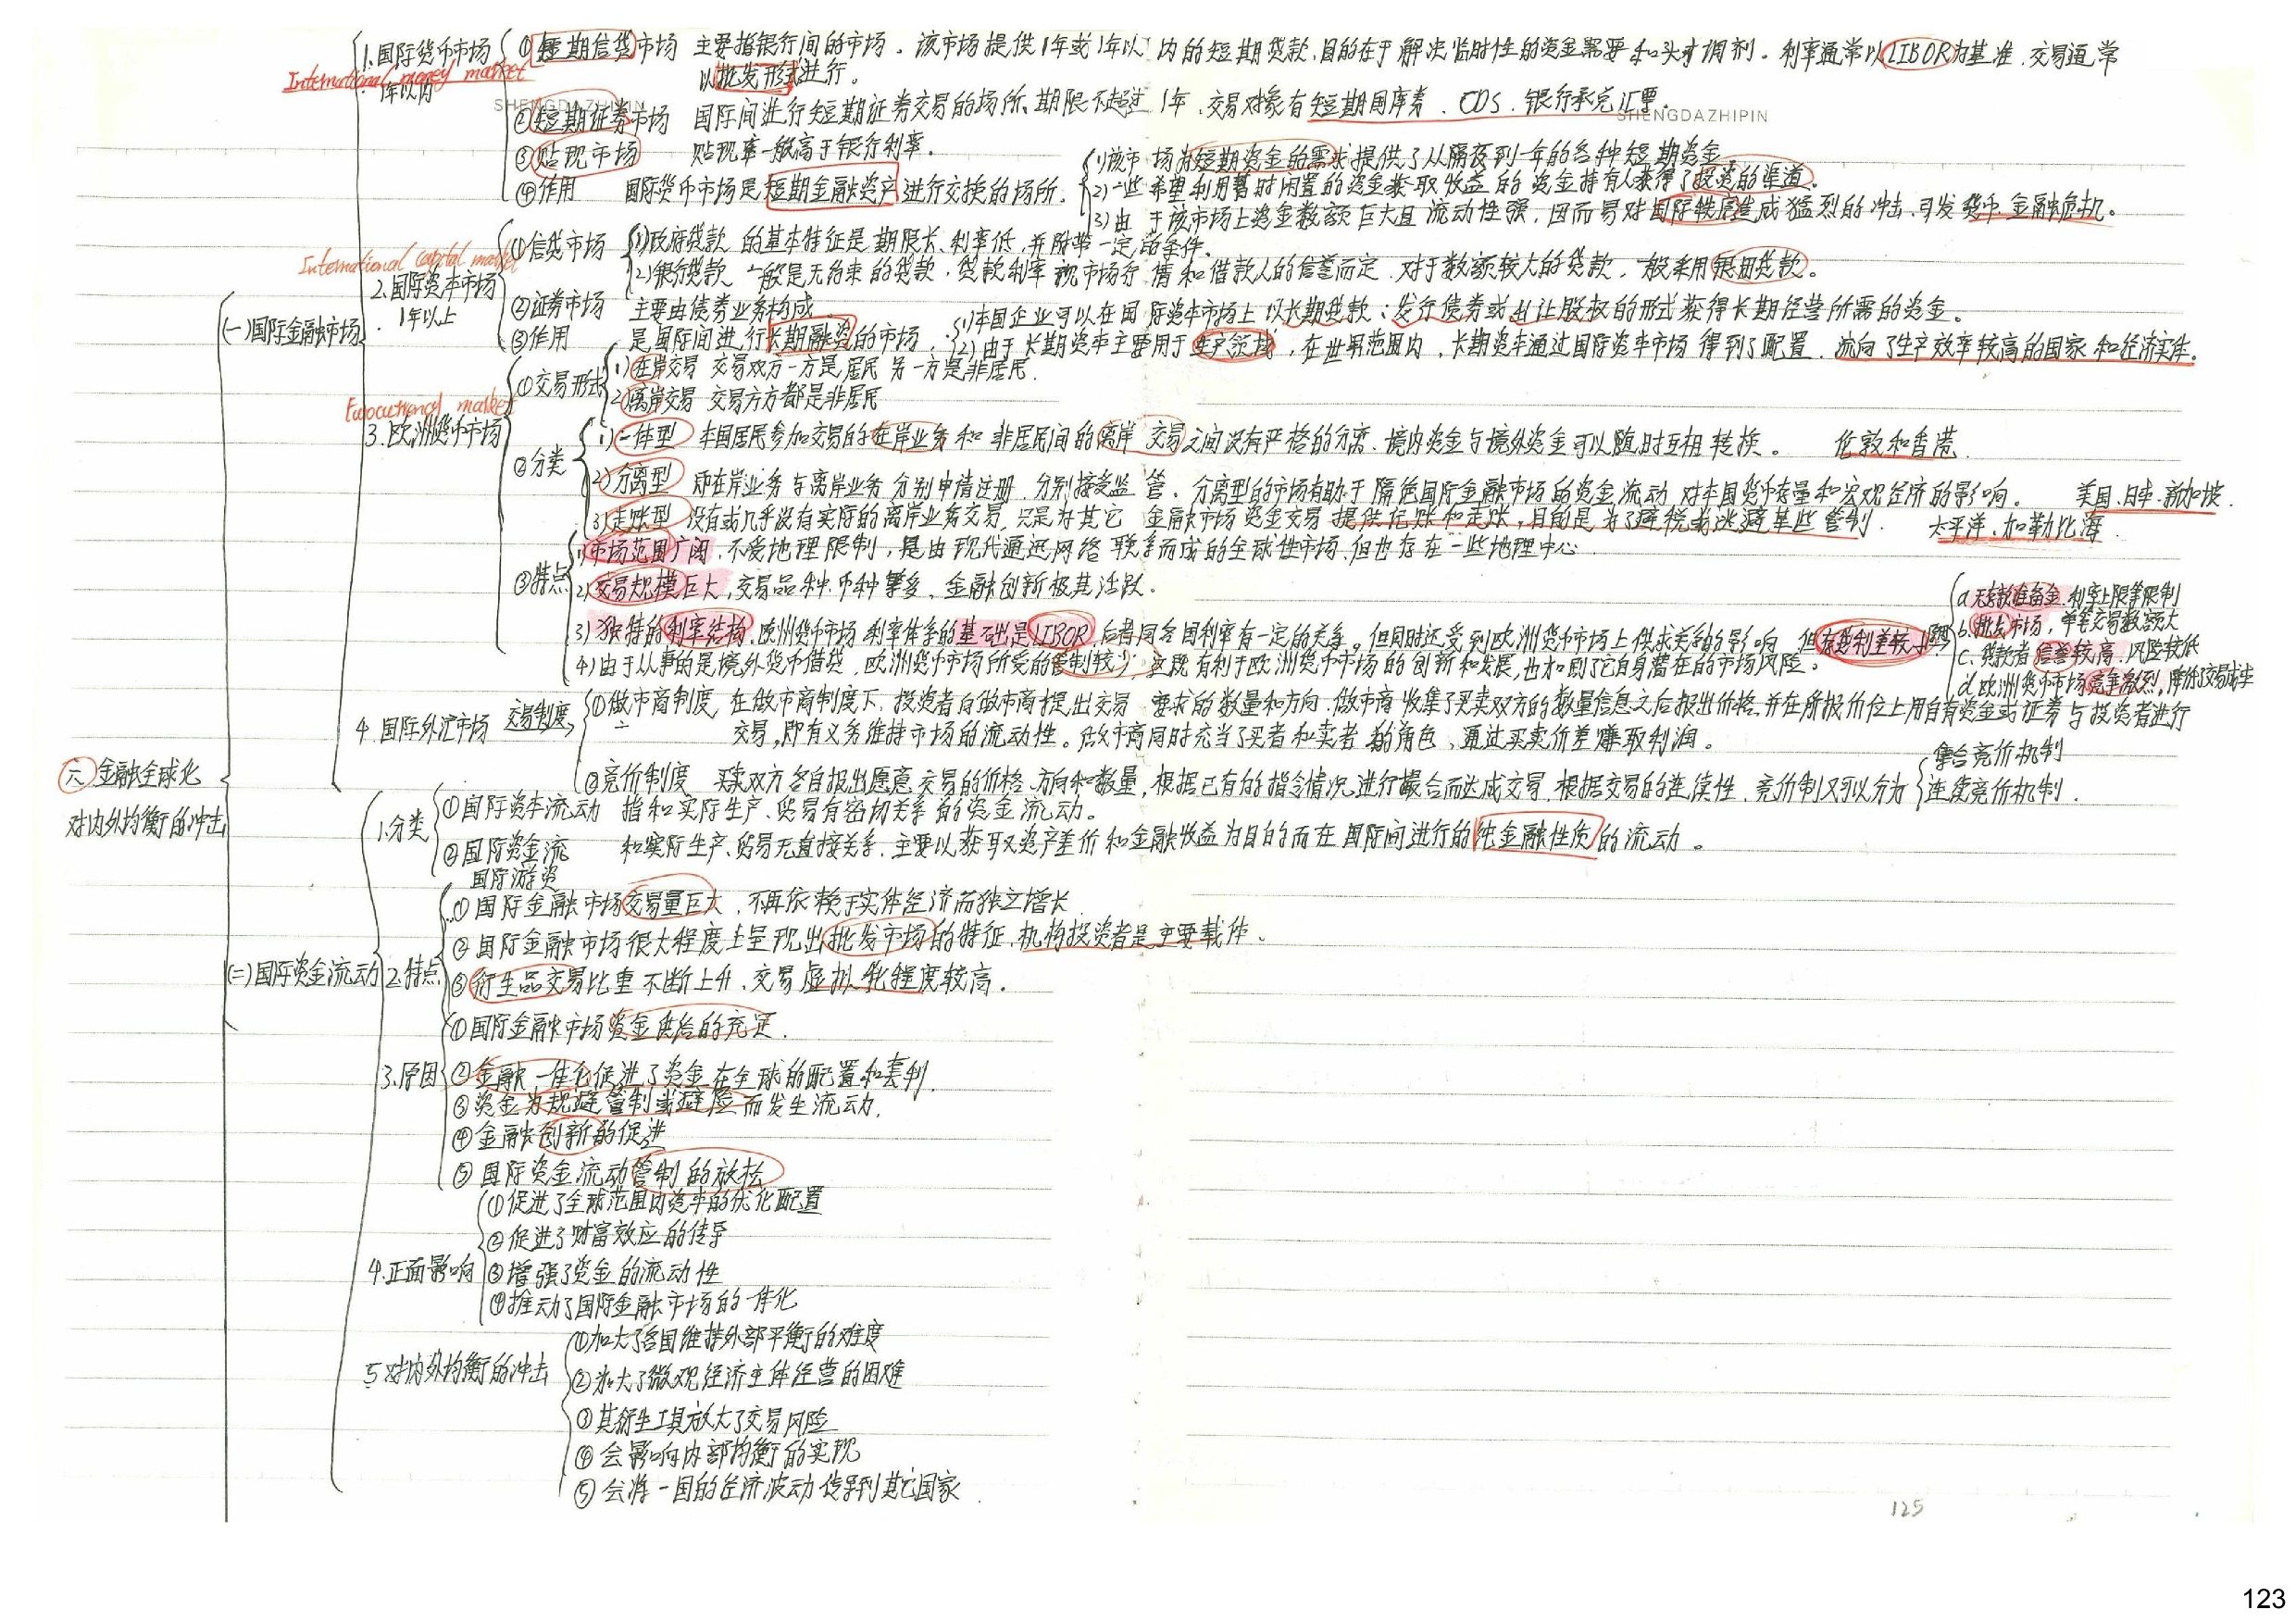 1.国际货币市场 ①短期信贷市场 主要指银行间的市场。该市场提供1年或1年以内的短期贷款,目的在于解决临时性的资金需要和头寸调剂。利率通常以LIBOR为基准,交易通常
International money market
1年以内
以批发形式进行。
SHENGDAZHIPIN
②短期证券市场 国际间进行短期证券交易的场所,期限不超过1年,交易对象有短期国库券、CDS、银行承兑汇票。
SHENGDAZHIPIN
③贴现市场 贴现率一般高于银行利率。
④作用 国际货币市场是短期金融资产进行交换的场所。
1)该市场为短期资金的需求提供了从隔夜到一年的各种短期资金。
2)一些希望利用暂时闲置的资金获取收益的资金持有人获得了投资的渠道。
3)由于该市场上资金数额巨大且流动性强,因而易对国际秩序造成猛烈的冲击,引发货币、金融危机。
International capital market
2.国际资本市场
1年以上
①信贷市场 1)政府贷款 的基本特征是期限长、利率低,并附带一定的条件。
2)银行贷款 一般是无约束的贷款,贷款利率视市场行情和借款人的信誉而定,对于数额较大的贷款,一般采用银团贷款。
②证券市场 主要由债券业务构成。
③作用 是国际间进行长期融资的市场。
(1)本国企业可以在国际资本市场上以长期贷款;发行债券或出让股权的形式获得长期经营所需的资金。
(2)由于长期资本主要用于生产领域,在世界范围内,长期资本通过国际资本市场得到了配置,流向了生产效率较高的国家和经济实体。
(一)国际金融市场
Eurocurrency market
3.欧洲货币市场
①交易形式 1)在岸交易 交易双方一方是居民 另一方是非居民.
2)离岸交易 交易方方都是非居民
②分类 1)一体型 本国居民参加交易的在岸业务和非居民间的离岸交易之间没有严格的分离、境内资金与境外资金可以随时互相转换。 伦敦和香港.
2)分离型 即在岸业务与离岸业务分别申请注册,分别接受监管。分离型的市场有助于隔绝国际金融市场的资金流动对本国货币存量和宏观经济的影响。 美国、日本、新加坡.
3)走账型 没有或几乎没有实际的离岸业务交易,只是为其它金融市场资金交易提供记账和走账,目的是为了避税或逃避某些管制. 太平洋、加勒比海.
③特点 1)市场范围广阔,不受地理限制,是由现代通迅网络联系而成的全球性市场,但也存在一些地理中心.
2)交易规模巨大,交易品种、币种繁多,金融创新极其活跃。
3)独特的利率结构,欧洲货币市场利率体系的基础是LIBOR,后者同各国利率有一定的关系。但同时还受到欧洲货币市场上供求关系的影响,但存贷利差较小
a.无存款准备金、利率上限等限制
b.批发市场,单笔交易数额大
c.贷款者信誉较高,风险较低
d.欧洲货币市场竞争激烈,降低了交易成本
4)由于从事的是境外货币借贷,欧洲货币市场所受的管制较少,有利于欧洲货币市场的创新和发展,也加剧了它自身潜在的市场风险。
4.国际外汇市场 交易制度
①做市商制度,在做市商制度下,投资者向做市商提出交易要求的数量和方向,做市商收集了买卖双方的数量信息之后报出价格,并在所报价位上用自有资金或证券与投资者进行
交易,即有义务维持市场的流动性。做市商同时充当了买者和卖者的角色,通过买卖价差赚取利润。
②竞价制度 买卖双方各自报出愿意交易的价格、方向和数量,根据已有的指令情况进行撮合而达成交易,根据交易的连续性,竞价制又可以分为
集合竞价机制
连续竞价机制.
六 金融全球化
对内外均衡的冲击
(二)国际资金流动
1.分类 ①国际资本流动 指和实际生产、贸易有密切关系的资金流动。
②国际资金流 和实际生产、贸易无直接关系,主要以获取资产差价和金融收益为目的而在国际间进行的纯金融性质的流动。
国际游资
2.特点 ①国际金融市场交易量巨大,不再依赖于实体经济而独立增长
②国际金融市场很大程度上呈现出批发市场的特征,机构投资者是主要载体、
③衍生品交易比重不断上升,交易虚拟化程度较高。
3.原因 ①国际金融市场资金供给的充足.
②金融一体化促进了资金在全球的配置和套利.
③资金为规避管制或避险而发生流动.
④金融创新的促进
⑤国际资金流动管制的放松
4.正面影响 ①促进了全球范围内资本的优化配置
②促进了财富效应的传导
③增强了资金的流动性
④推动了国际金融市场的一体化
5.对内外均衡的冲击 ①加大了各国维持外部平衡的难度
②加大了微观经济主体经营的困难
③其衍生工具放大了交易风险
④会影响内部均衡的实现
⑤会将一国的经济波动传导到其它国家.
125
123